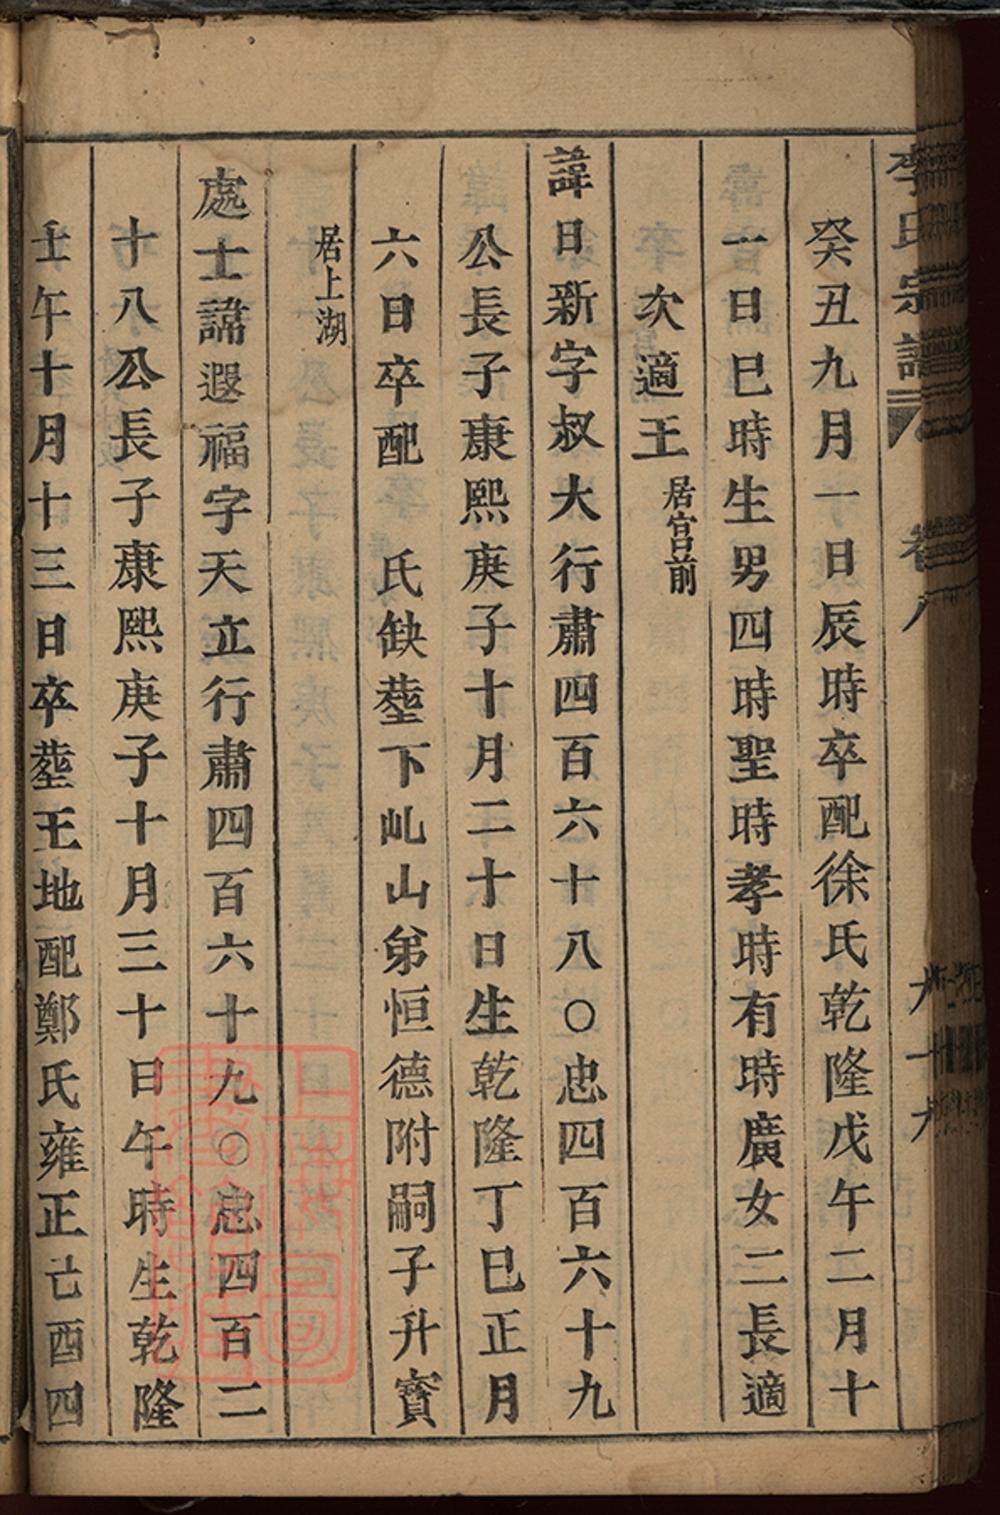 李氏宗譜 卷八
癸丑九月一日辰時卒配徐氏乾隆戊午二月十
一日巳時生男四時聖時孝時有時廣女二長適
次適王 居宫前
諱日新字叔大行肅四百六十八○忠四百六十九
公長子康熙庚子十月二十日生乾隆丁巳正月
六日卒配 氏缺塟下乢山弟恒德附嗣子升寳
居上湖
處士諱遐福字天立行肅四百六十九○忠四百二
十八公長子康熙庚子十月三十日午時生乾隆
壬午十月十三日卒塟王地配鄭氏雍正亡酉四